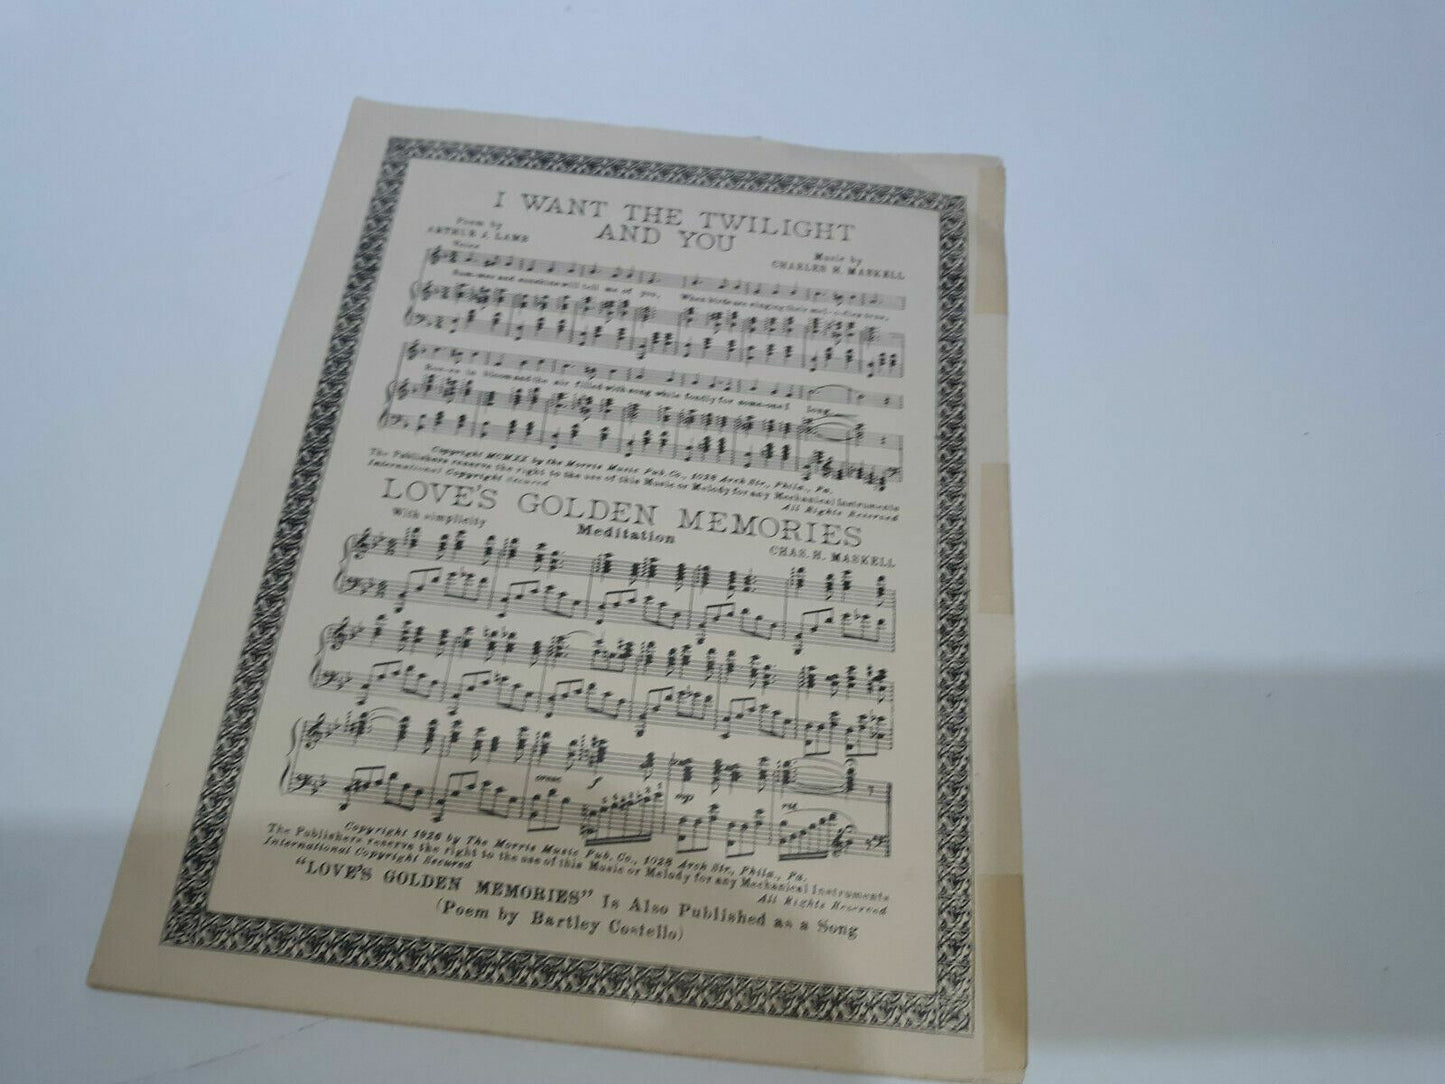 I WANT THE TWILIGHT
AND YOU
Poem by
ARTHUR J. LAMB
Music by
CHARLES H. MASKELL
Voice
Sum-mer and sunshine will tell me of you, When birds are singing their mel-o-dies true,
Ros-es in bloom and the air filled with song while fondly for some-one I long
Copyright MCMXX by the Morris Music Pub. Co., 1028 Arch Str., Phila., Pa.
The Publishers reserve the right to the use of this Music or Melody for any Mechanical Instruments
International Copyright Secured
All Rights Reserved
LOVE'S GOLDEN MEMORIES
Meditation
With simplicity
CHAS. H. MASKELL
cresc
f
mp
rit
Copyright 1926 by The Morris Music Pub. Co., 1028 Arch Str., Phila., Pa.
The Publishers reserve the right to the use of this Music or Melody for any Mechanical Instruments
International Copyright Secured
All Rights Reserved
"LOVE'S GOLDEN MEMORIES" Is Also Published as a Song
(Poem by Bartley Costello)